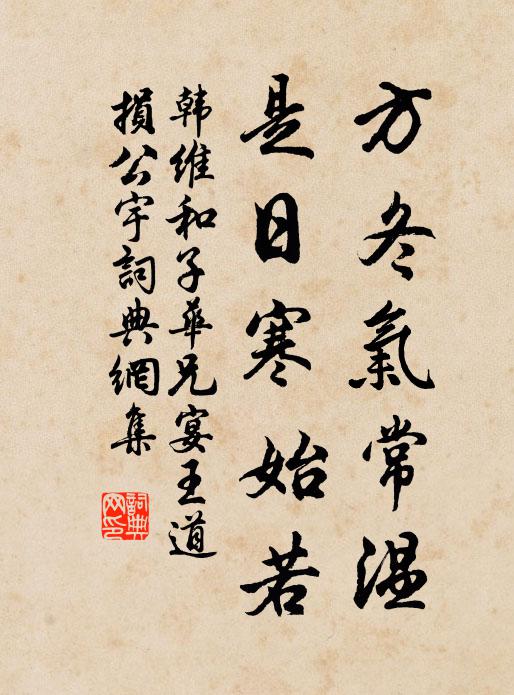 方冬氣常溫
是日寒始若
韓維和子華兄宴王道
損公宇詞典網集
詞典
网印